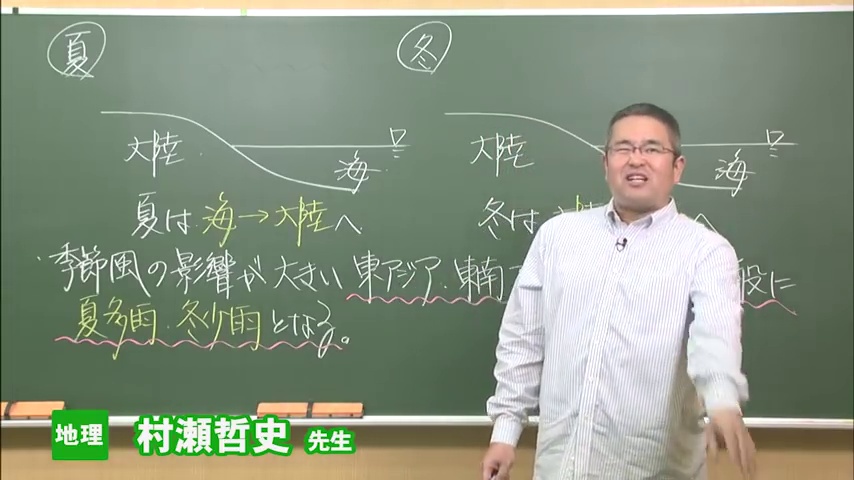 夏
冬
大陸
海
大陸
海
夏は 海→大陸へ
冬は 大陸 へ
・季節風の影響が大きい 東アジア・東南 般に
夏多雨・冬少雨となる。
地理 村瀬哲史 先生